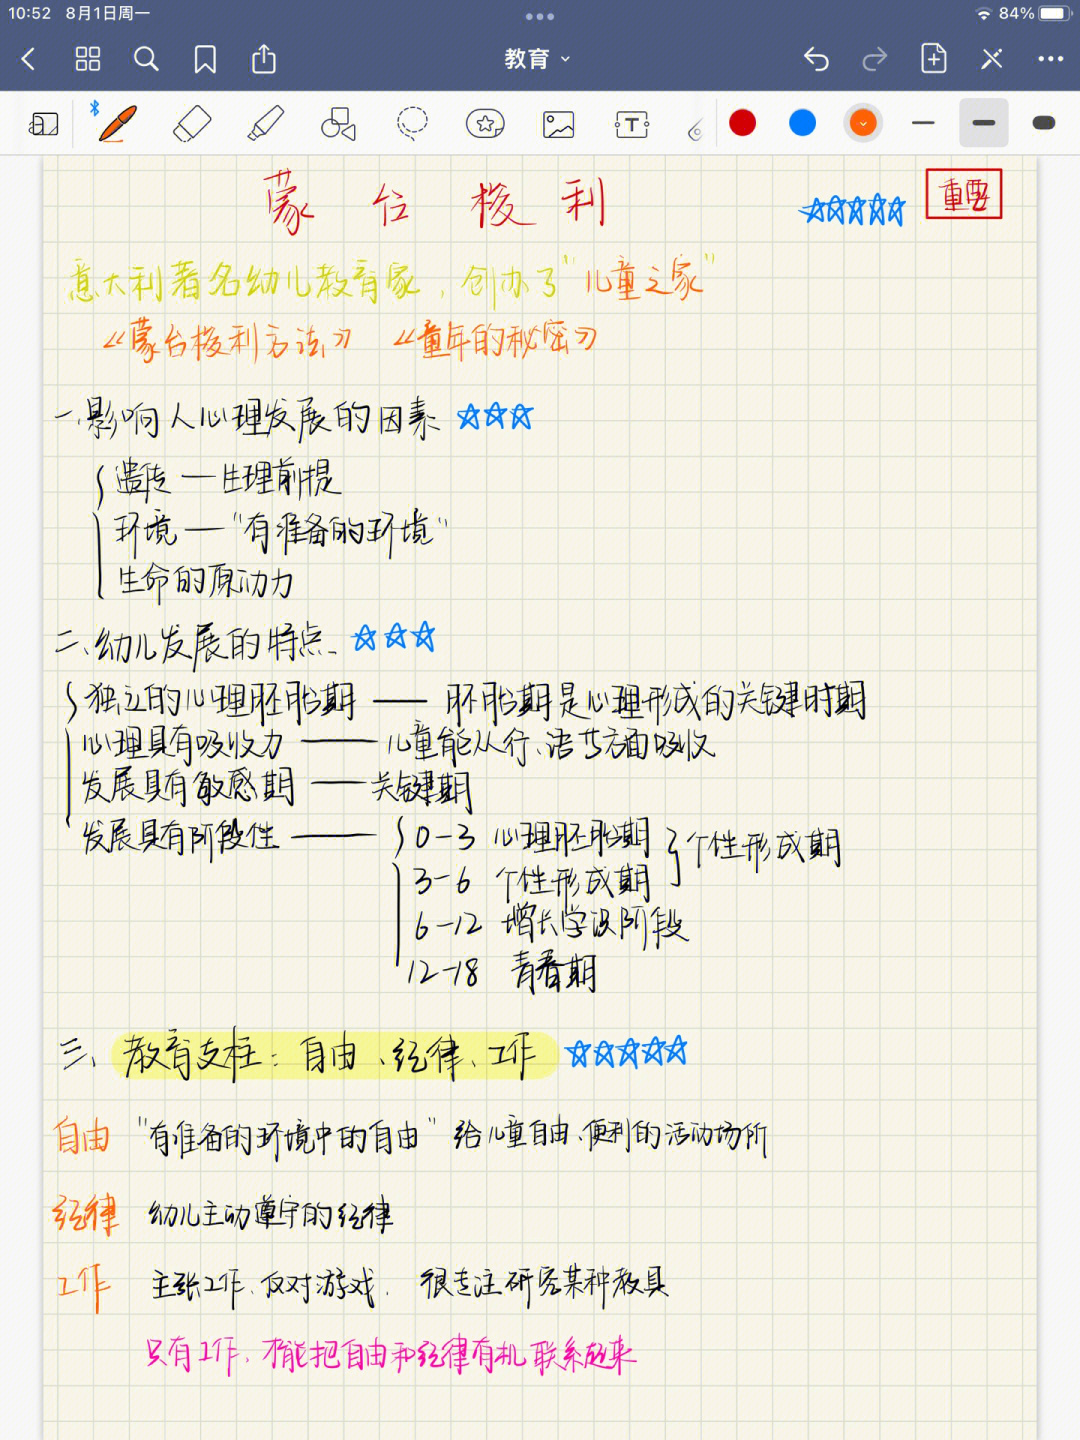 10:52 8月1日周一 84%
教育
T
蒙台梭利 重要
意大利著名幼儿教育家，创办了"儿童之家"
《蒙台梭利方法》 《童年的秘密》
一、影响人心理发展的因素
遗传 — 生理前提
环境 — "有准备的环境"
生命的原动力
二、幼儿发展的特点
独立的心理胚胎期 — 胚胎期是心理形成的关键时期
心理具有吸收力 — 儿童能从行、语等方面吸收
发展具有敏感期 — 关键期
发展具有阶段性 — 0-3 心理胚胎期 个性形成期
3-6 个性形成期
6-12 增长学识阶段
12-18 青春期
三、教育支柱：自由、纪律、工作
自由 "有准备的环境中的自由" 给儿童自由、便利的活动场所
纪律 幼儿主动遵守的纪律
工作 主张工作、反对游戏. 很专注研究某种教具
只有工作、才能把自由和纪律有机联系起来